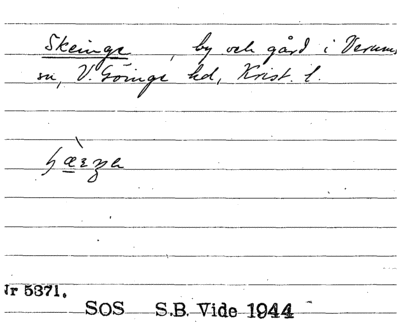 Skeinge, by och gård i Verums
sn, V. Göinge hd, Krist. l.
Nr 5371.
SOS S.B. Vide 1944